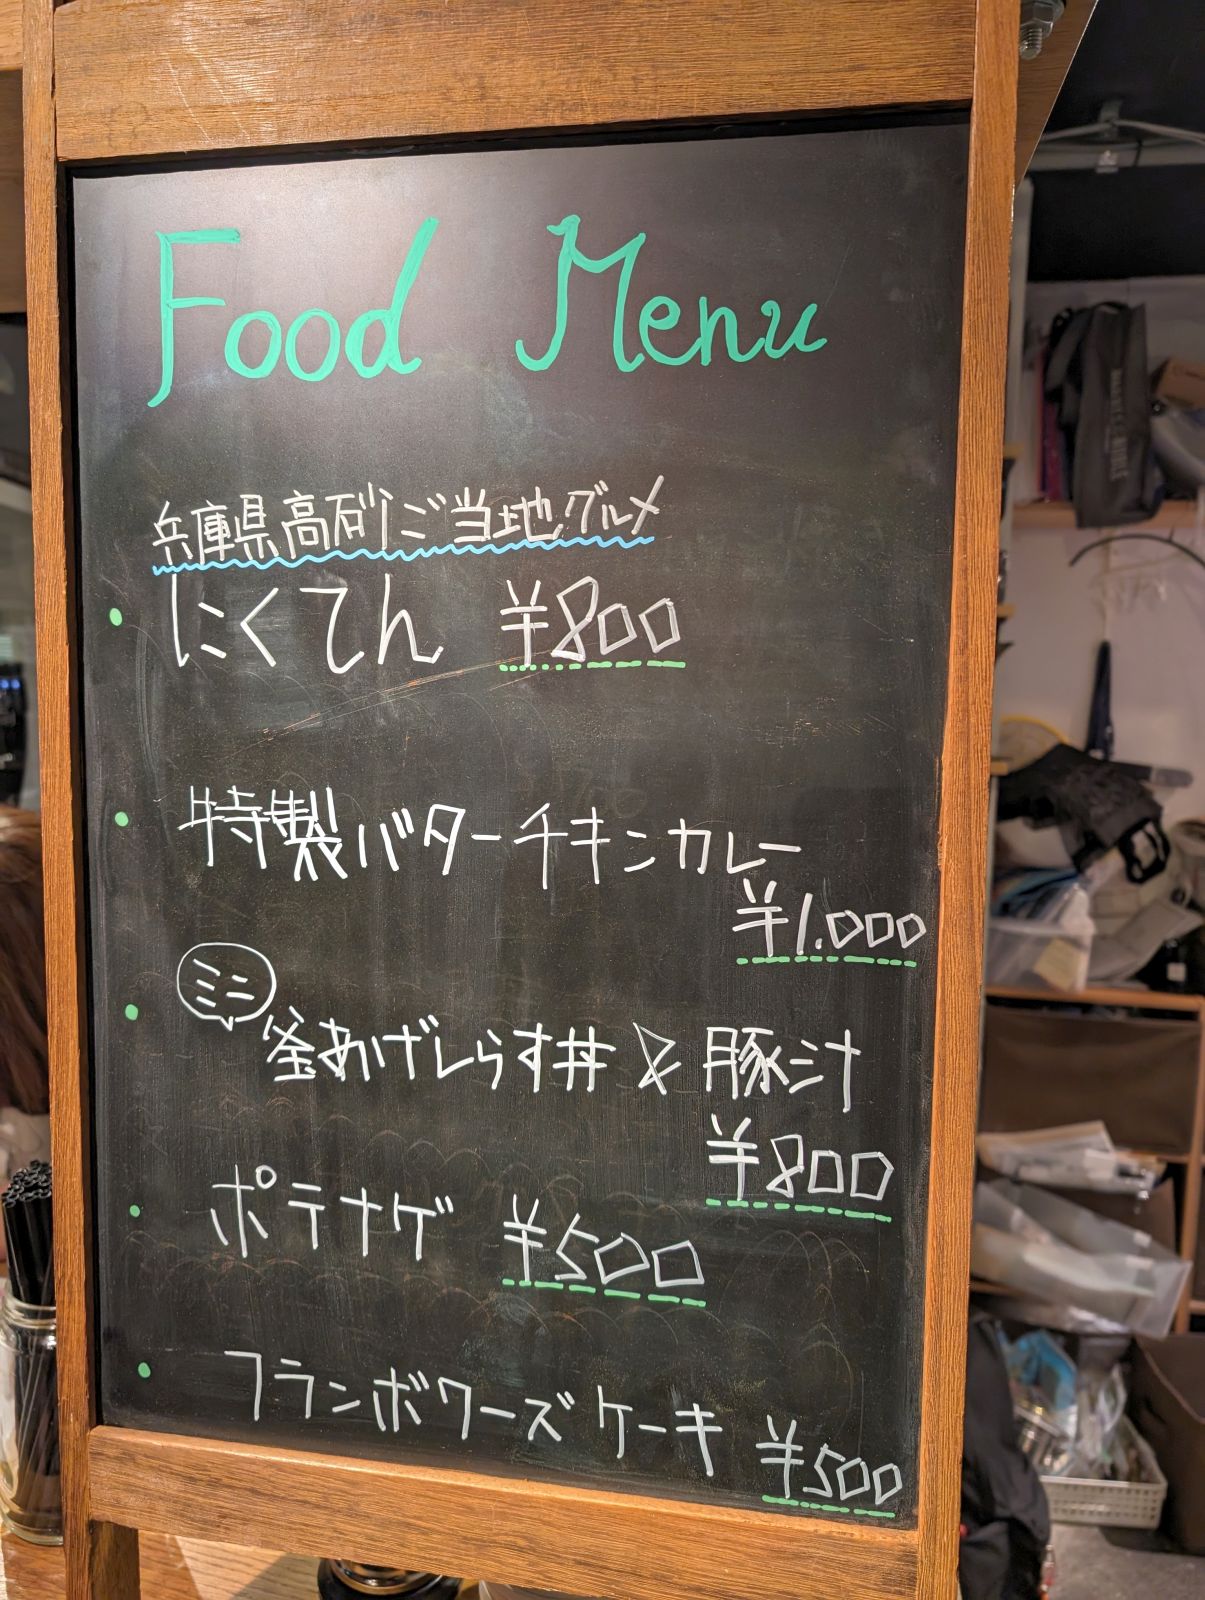 Food Menu
兵庫県高砂ご当地グルメ
にくてん ¥800
特製バターチキンカレー
¥1.000
ミニ
釜あげしらす丼 & 豚汁
¥800
ポテナゲ ¥500
フランボワーズケーキ ¥500